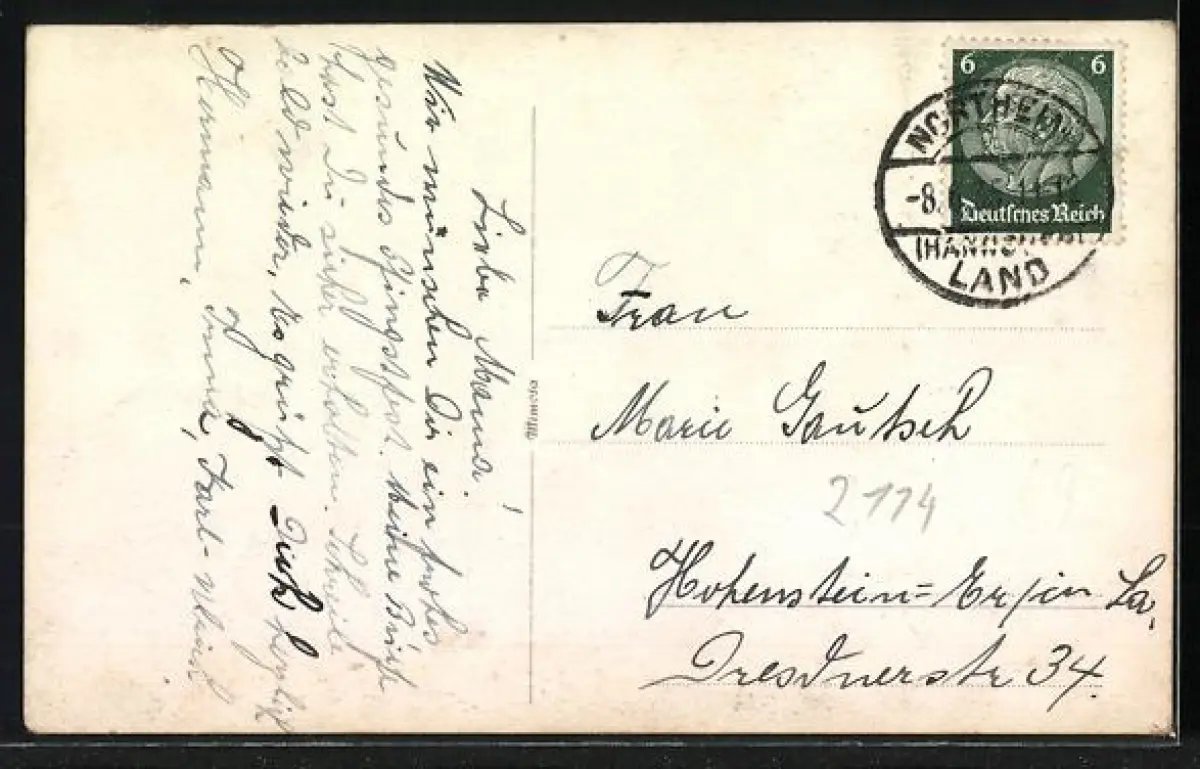 Liebe Mama!
Wir wünschen Dir ein frohes
gesundes Pfingstfest. Meine Briefe
hast Du sicher erhalten. Schreibe
bald wieder, es grüßt Dich herzlich
Hermann, Karl-
6 6
Deutsches Reich
NORTHEIM
-8.
(HANNOVER)
LAND
Frau
Marie Gautsch
2114
Hohenstein=Er/in Sa.
Dresdnerstr 34.